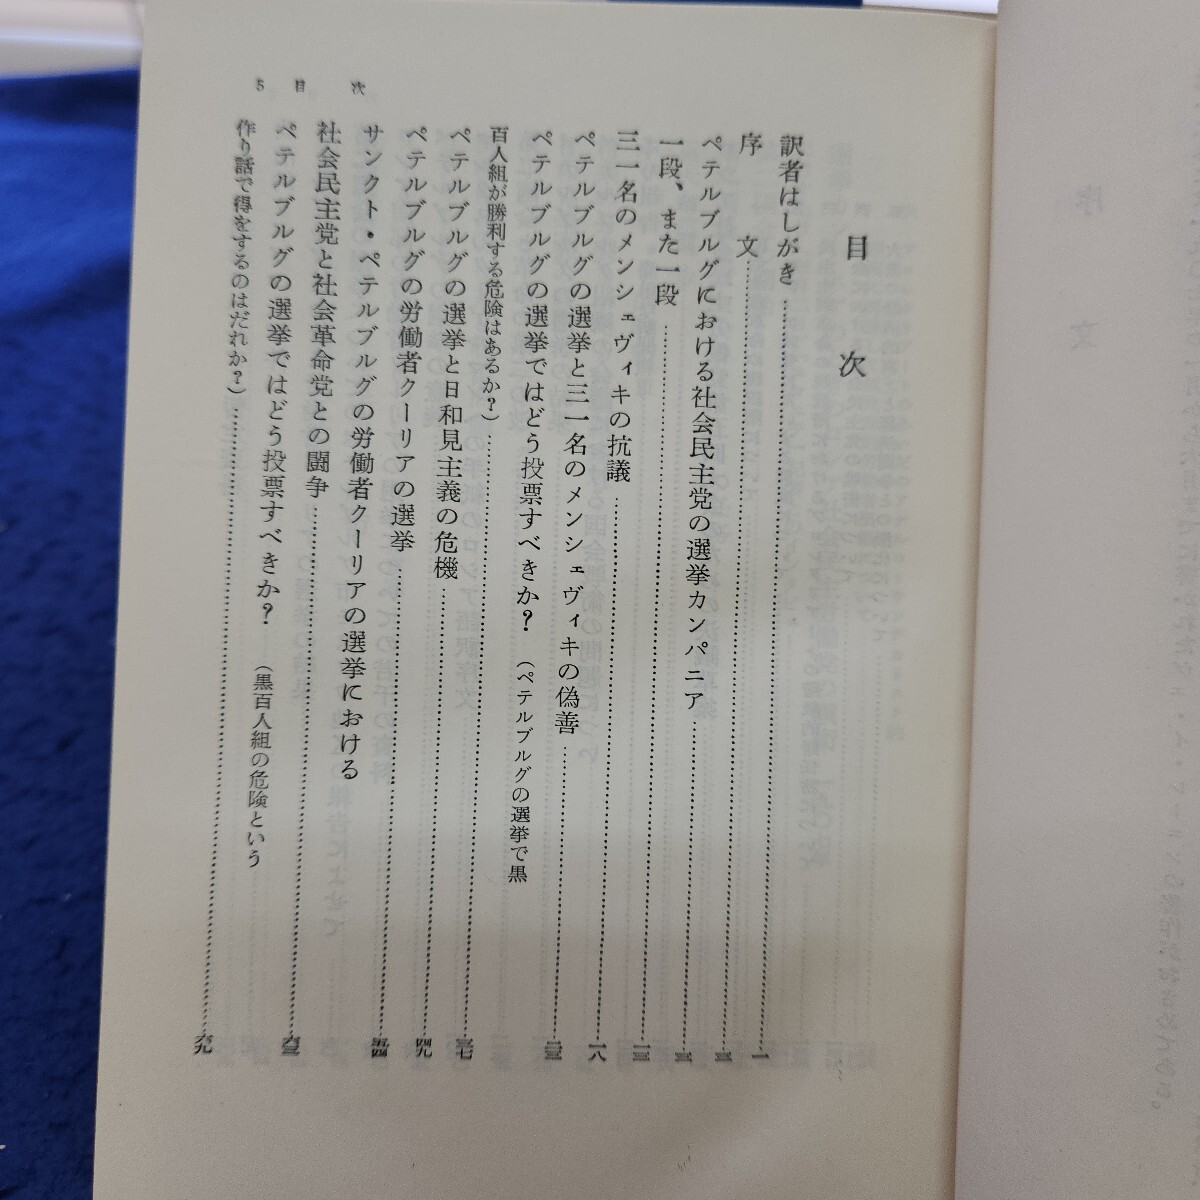 5 目 次
目 次
訳者はしがき……一
序 文……三
ペテルブルグにおける社会民主党の選挙カンパニア……三
一段、また一段……一三
三一名のメンシェヴィキの抗議……一八
ペテルブルグの選挙と三一名のメンシェヴィキの偽善……二三
ペテルブルグの選挙ではどう投票すべきか？（ペテルブルグの選挙で黒
百人組が勝利する危険はあるか？）……三七
ペテルブルグの選挙と日和見主義の危機……四九
ペテルブルグの労働者クーリアの選挙……五四
サンクト・ペテルブルグの労働者クーリアの選挙における
社会民主党と社会革命党との闘争……六三
ペテルブルグの選挙ではどう投票すべきか？（黒百人組の危険という
作り話で得をするのはだれか？）……六九
序 文